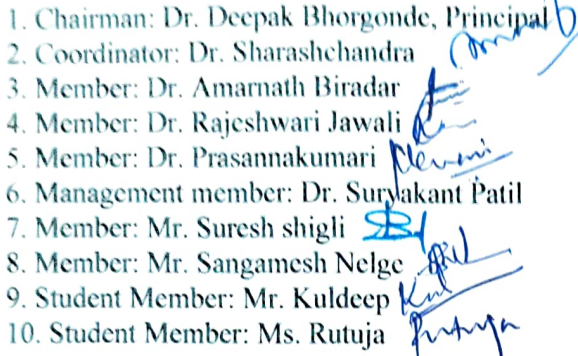 1. Chairman: Dr. Deepak Bhorgonde, Principal
2. Coordinator: Dr. Sharashchandra
3. Member: Dr. Amarnath Biradar
4. Member: Dr. Rajeshwari Jawali
5. Member: Dr. Prasannakumari
6. Management member: Dr. Suryakant Patil
7. Member: Mr. Suresh shigli
8. Member: Mr. Sangamesh Nelge
9. Student Member: Mr. Kuldeep Kul
10. Student Member: Ms. Rutuja Rutuja